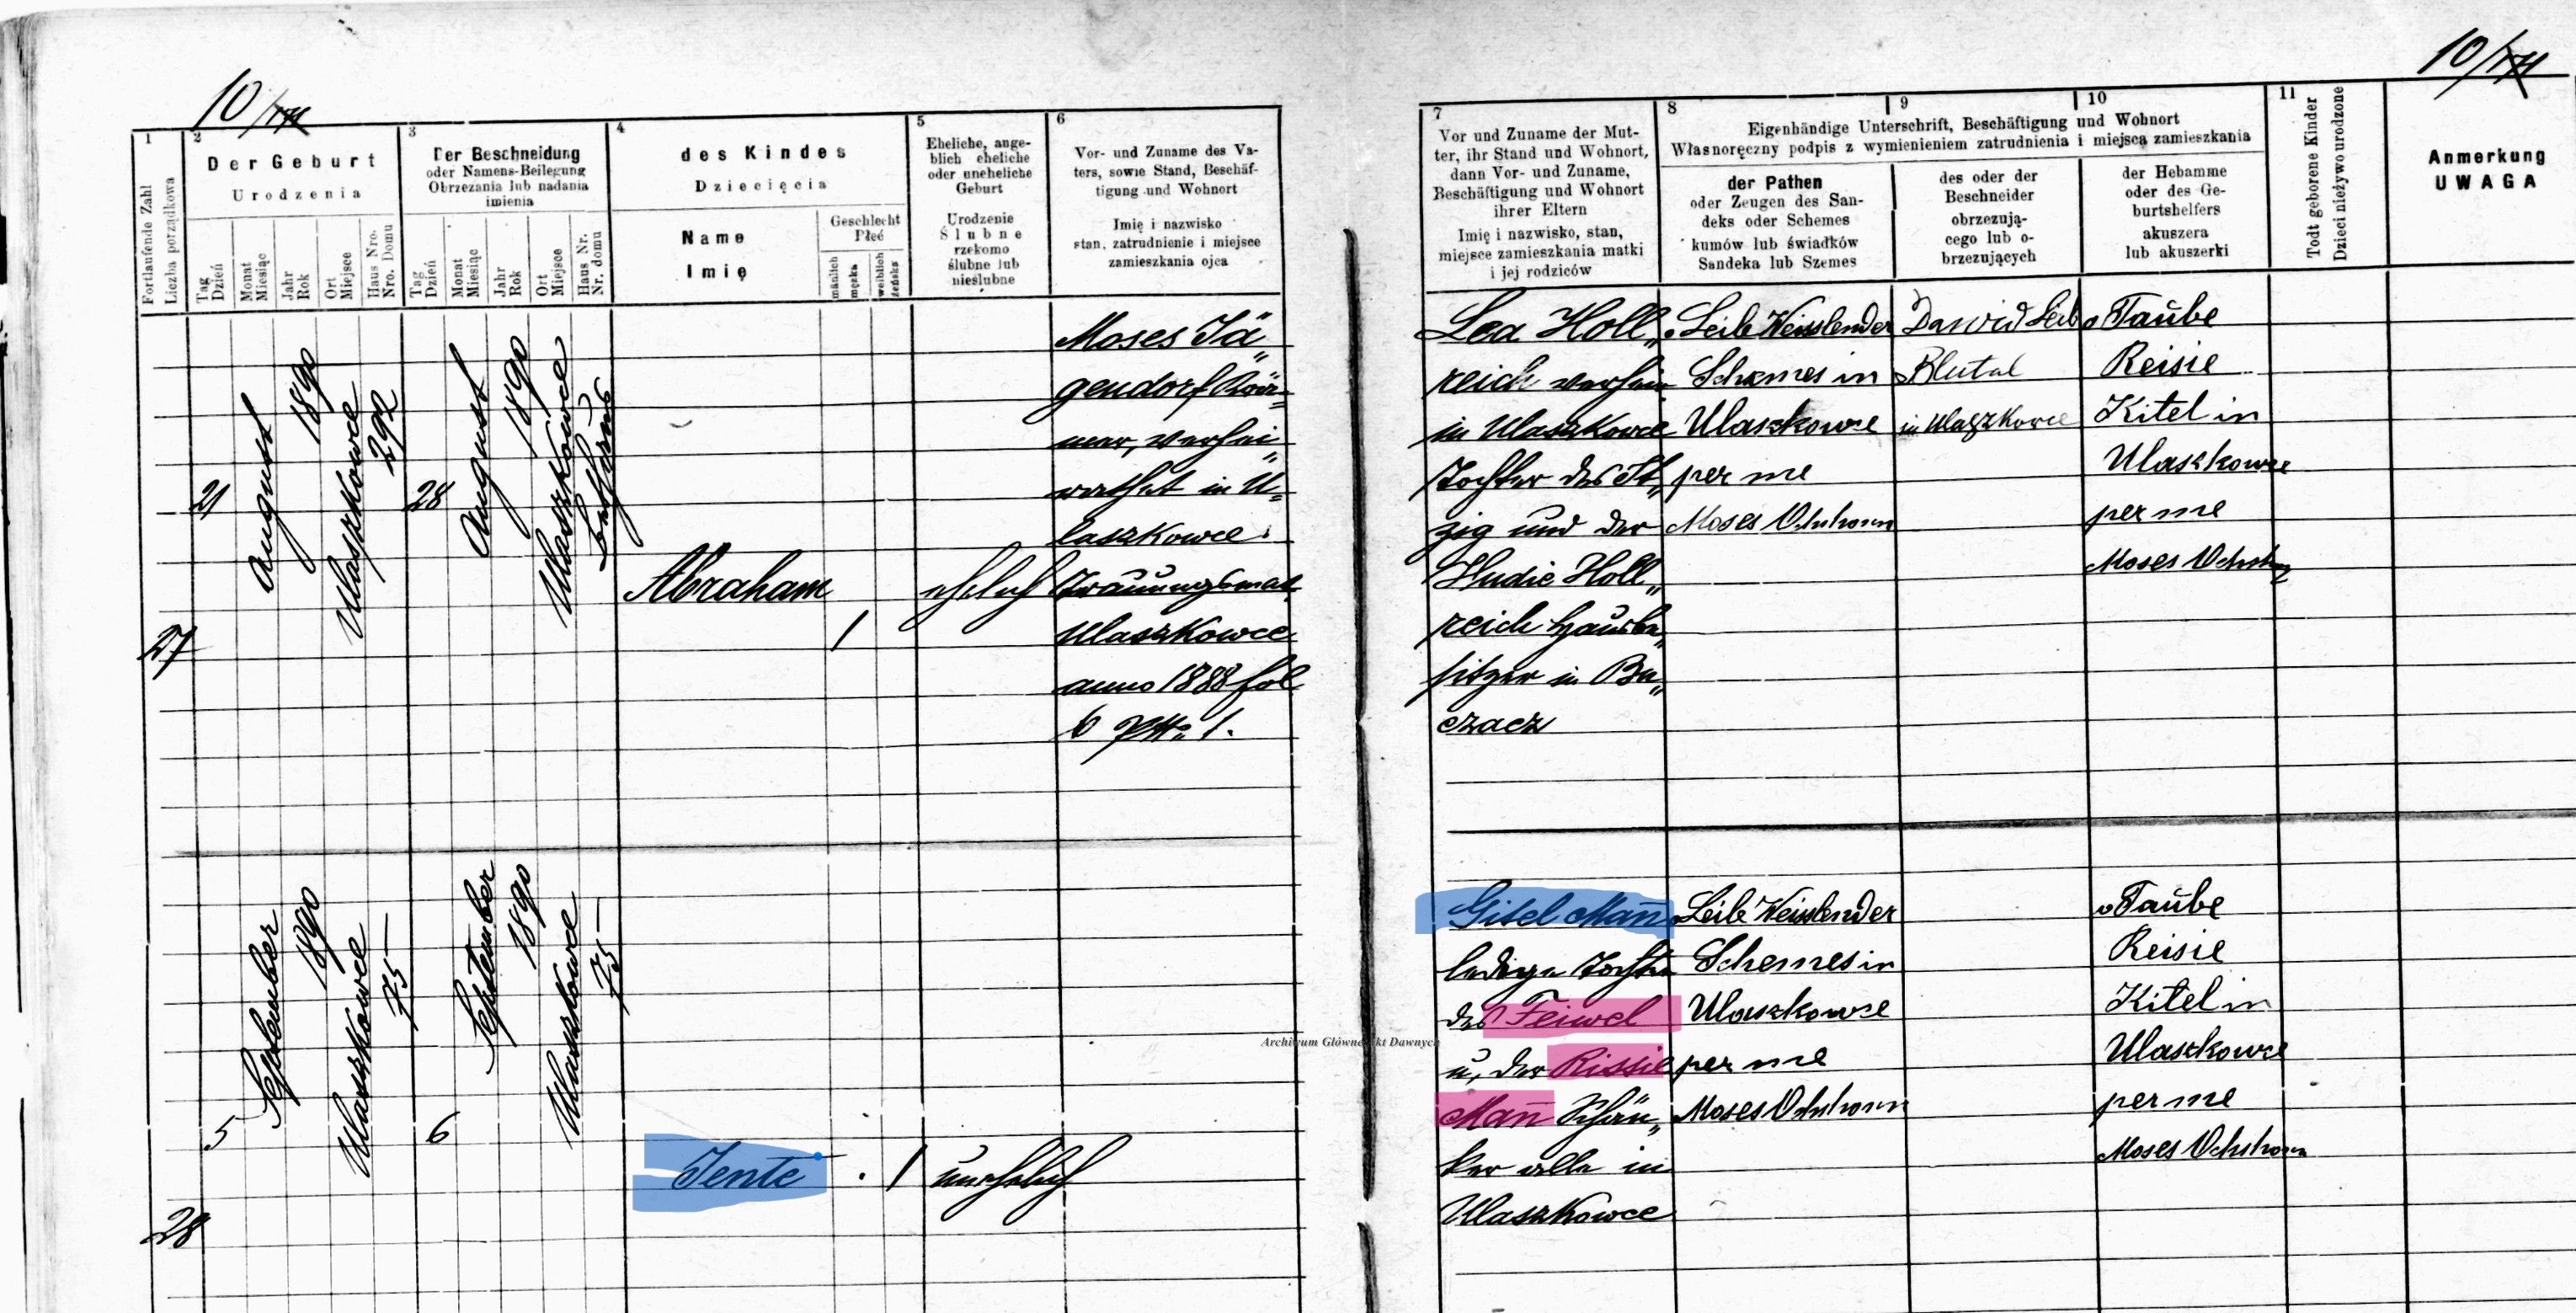 10/
10/
1
2
Der Geburt
Urodzenia
3
Der Beschneidung
oder Namens-Beilegung
Obrzezania lub nadania
imienia
4
des Kindes
Dziecięcia
5
Eheliche, ange-
blich eheliche
oder uneheliche
Geburt
Urodzenie
Ślubne
rzekomo
ślubne lub
nieślubne
6
Vor- und Zuname des Va-
ters, sowie Stand, Beschäf-
tigung und Wohnort
Imię i nazwisko
stan, zatrudnienie i miejsce
zamieszkania ojca
Fortlaufende Zahl
Liczba porządkowa
Tag
Dzień
Monat
Miesiąc
Jahr
Rok
Ort
Miejsce
Haus Nro.
Nro. Domu
Tag
Dzień
Monat
Miesiąc
Jahr
Rok
Ort
Miejsce
Haus Nr.
Nr. domu
Name
Imię
Geschlecht
Płeć
männlich
męska
weiblich
żeńska
7
Vor und Zuname der Mut-
ter, ihr Stand und Wohnort,
dann Vor- und Zuname,
Beschäftigung und Wohnort
ihrer Eltern
Imię i nazwisko, stan,
miejsce zamieszkania matki
i jej rodziców
8
9
10
Eigenhändige Unterschrift, Beschäftigung und Wohnort
Własnoręczny podpis z wymienieniem zatrudnienia i miejsca zamieszkania
der Pathen
oder Zeugen des San-
deks oder Schemes
kumów lub świadków
Sandeka lub Szemes
des oder der
Beschneider
obrzezują-
cego lub o-
brzezujących
der Hebamme
oder des Ge-
burtshelfers
akuszera
lub akuszerki
11
Todt geborene Kinder
Dzieci nieżywo urodzone
Anmerkung
UWAGA
27
21
August
1890
Ulaszkowce
292
28
August
1890
Ulaszkowce
Bethaus
Abraham
1
ehelich
Moses Jä„
gendorf
in U=
laszkowce.
Trauungsmat.
Ulaszkowce
anno 1888 fol
6 1.
Lea Holl„
reich
in Ulaszkowce
Tochter des It„
zig und der
Hudie Holl„
reich Hausbe„
sitzer in Bu„
czacz
Leib Weisslender
Schemes in
Ulaszkowce
per me
Moses Ochshorn
Dawid Leib
Blutal
in Ulaszkowce
Taube
Reisie
Kitel in
Ulaszkowce
per me
Moses Ochshorn
28
5
September
1890
Ulaszkowce
75
6
September
1890
Ulaszkowce
75
Jente
1
unehelich
Gitel Mañ
ledige Tochter
des Feiwel
u. der Rissie
Mañ Schän„
ker alle in
Ulaszkowce
Leib Weisslender
Schemes in
Ulaszkowce
per me
Moses Ochshorn
Taube
Reisie
Kitel in
Ulaszkowce
per me
Moses Ochshorn
Archiwum Główne Akt Dawnych